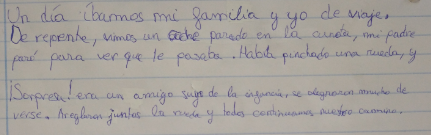 Un día íbamos mi familia y yo de viaje.
De reprente, vimos un coche parado en la cuneta, mi padre
paró para ver que le pasaba. Había pinchado una rueda, y
¡Sorpresa! era un amigo suyo de la infancia, se alegraron mucho de
verse. Areglaron juntos la rueda y todos continuamos nuestro camino.